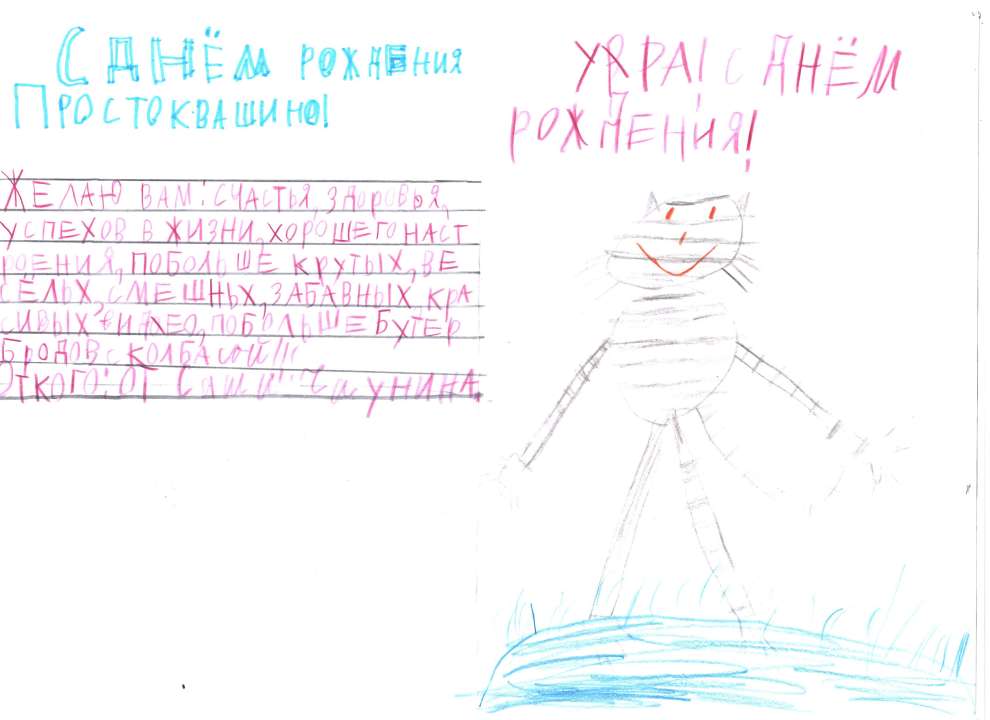 С ДНЁМ РОЖДЕНИЯ
ПРОСТОКВАШИНО!
ЖЕЛАЮ ВАМ: СЧАСТЬЯ, ЗДОРОВЬЯ,
УСПЕХОВ В ЖИЗНИ, ХОРОШЕГО НАСТ
РОЕНИЯ, ПОБОЛЬШЕ КРУТЫХ, ВЕ
СЁЛЫХ, СМЕШНЫХ, ЗАБАВНЫХ, КРА
СИВЫХ ВИДЕО, ПОБОЛЬШЕ БУТЕР
БРОДОВ С КОЛБАСОЙ!!!
ОТКОГО: ОТ Саши
УРРА! С ДНЁМ
РОЖДЕНИЯ!